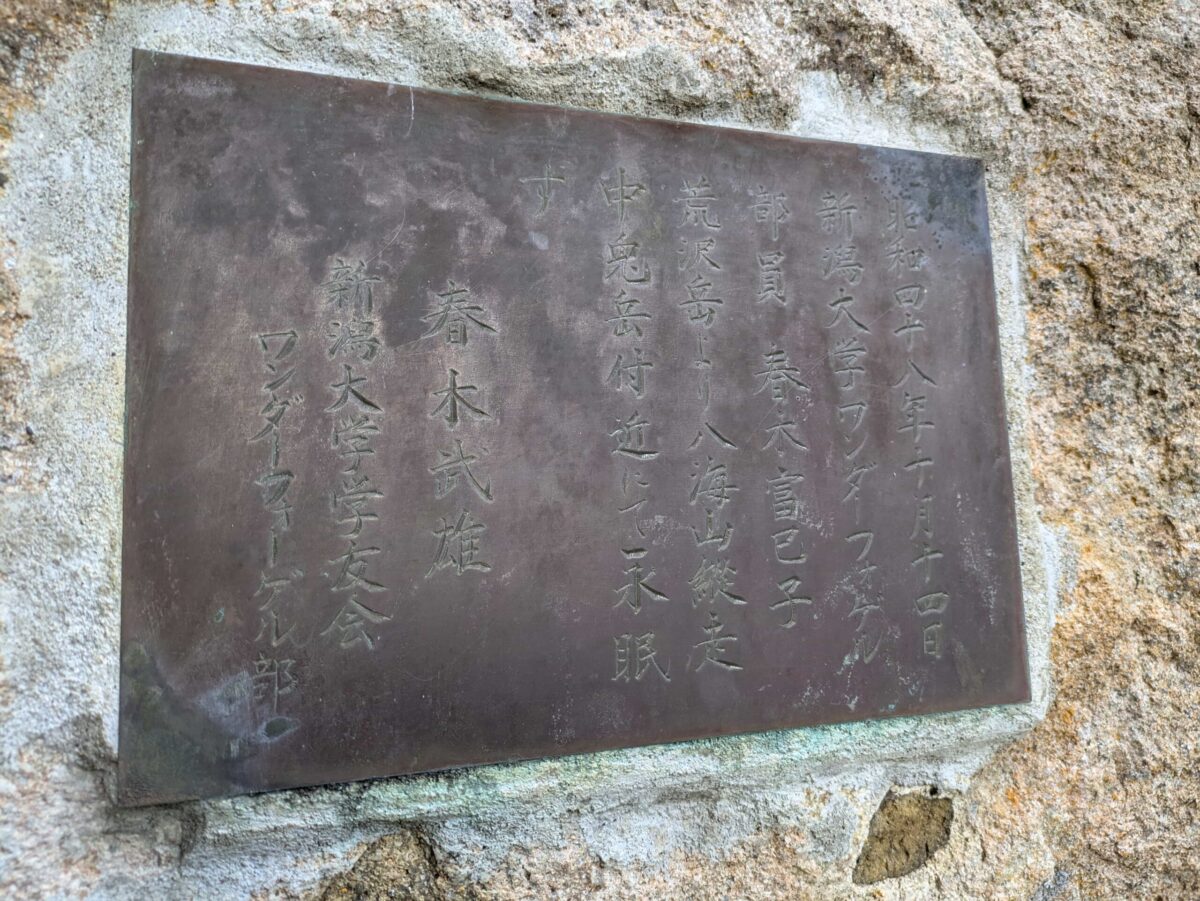 昭和四十八年十月十四日
新潟大学ワンダーフォゲル
部員 春木富巳子
荒沢岳より八海山縦走
中兎岳付近にて永眠
す
春木武雄
新潟大学学友会
ワンダーフォーゲル部